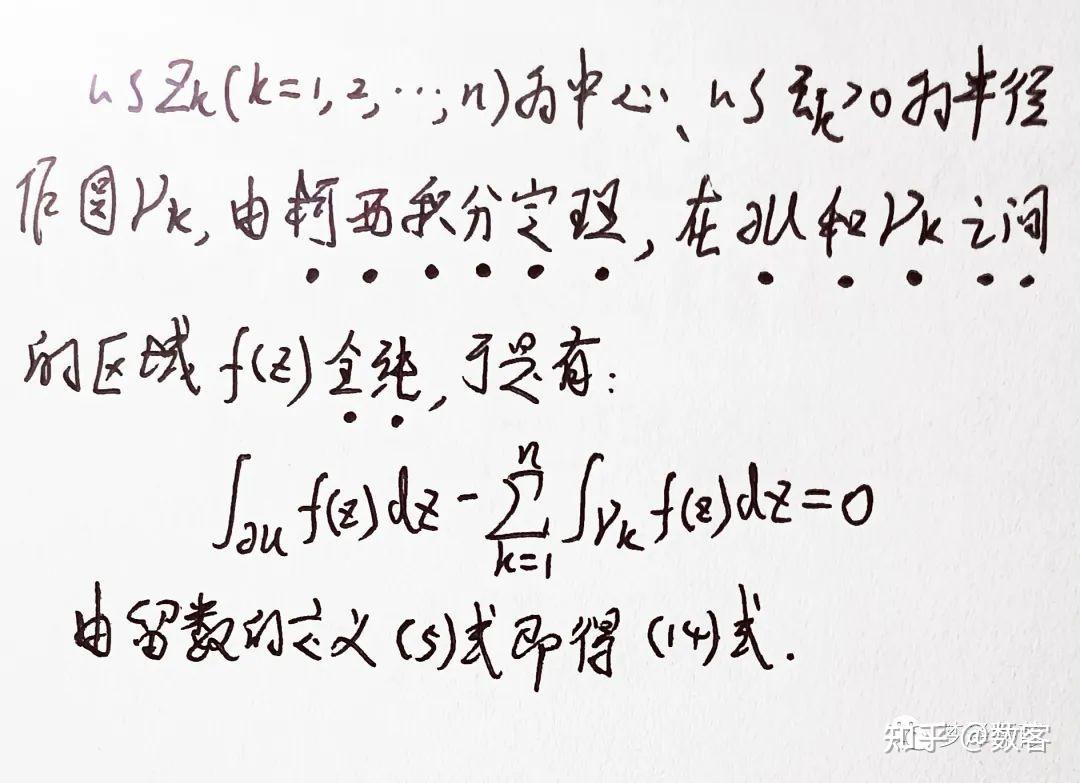 以 Zk(k=1,2,…,n)为中心、以 εk>0 为半径
作圆γk, 由柯西积分定理, 在∂U和γk之间
的区域 f(z)全纯, 于是有:
∫∂U f(z)dz - ∑(k=1 to n) ∫γk f(z)dz = 0
由留数的定义(5)式即得(14)式.
知乎 @数客